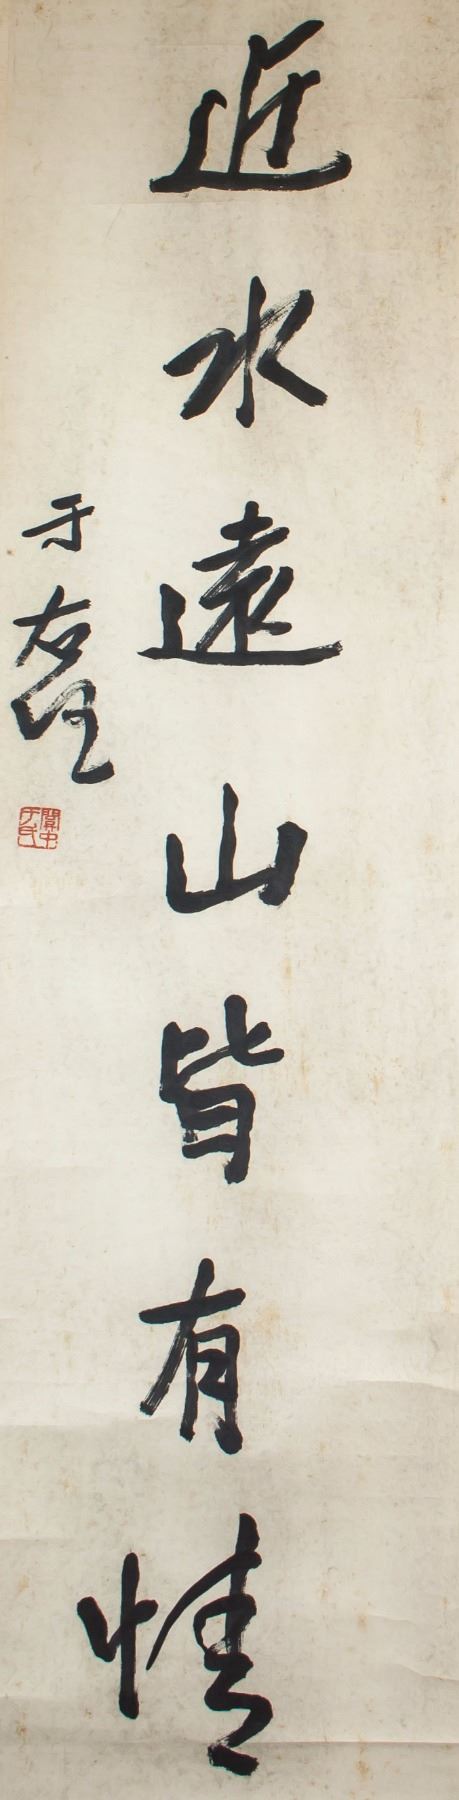 近水遠山皆有情
于右任
關中于氏